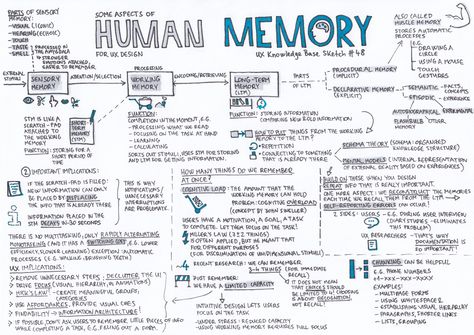 SOME ASPECTS OF
HUMAN MEMORY
FOR UX DESIGN
UX Knowledge Base Sketch #48
PARTS OF SENSORY
MEMORY:
- VISUAL (ICONIC)
- HEARING (ECHOIC)
- TOUCH
- SMELL
- TASTE
PROCESSED IN
THE AMYGDALA
STRONGER
EMOTIONS ATTACHED,
EASIER TO REMEMBER
ALSO CALLED
MUSCLE MEMORY
STORES AUTOMATIC
PROCESSES
E.G. DRAWING A
CIRCLE
USING A MOUSE
TOUCH
GESTURES
EXTERNAL
STIMULI
SENSORY
MEMORY
ATTENTION/SELECTION
PROCESSING
WORKING
MEMORY
ENCODING/RETRIEVING
LONG-TERM
MEMORY
(LTM)
PARTS
OF LTM
PROCEDURAL MEMORY
(IMPLICIT)
DECLARATIVE MEMORY
(EXPLICIT)
SEMANTIC - FACTS,
CONCEPTS
EPISODIC - EXPERIENCE
AUTOBIOGRAPHICAL
FLASHBULB
MEMORY
STM IS LIKE A
SCRATCH-PAD
ATTACHED TO
THE WORKING
MEMORY
SHORT-TERM
MEMORY
(STM)
FUNCTION: STORING FOR A
SHORT PERIOD OF TIME
FUNCTION:
COMPLETION IN THE MOMENT, E.G.
- PROCESSING WHAT WE READ
- FOCUSING ON THE TASK AT HAND
- LEARNING
- CALCULATING
SORTS OUT STIMULI, USES STM FOR STORING
AND LTM FOR GETTING INFORMATION.
FUNCTION: STORING INFORMATION
COMPARING NEW & OLD INFORMATION
HOW TO PUT THINGS FROM THE WORKING
MEMORY TO THE LTM?
REPETITION
CONNECTING TO SOMETHING
THAT IS ALREADY THERE
SCHEMA THEORY (SCHEMA=ORGANIZED
KNOWLEDGE STRUCTURE)
MENTAL MODELS (INTERNAL REPRESENTATION
OF EXTERNAL REALITY BASED ON EXPERIENCES)
BUILD ON THESE WHEN YOU DESIGN
REPEAT INFO THAT IS REALLY IMPORTANT.
2 IMPORTANT IMPLICATIONS:
IF THE SCRATCH-PAD IS FILLED
NEW INFORMATION CAN ONLY
BE PLACED BY DISPLACING
THE INFO THAT IS ALREADY THERE
INFORMATION PLACED IN THE
STM DECAYS IN 30 SECONDS
THIS IS WHY
NOTIFICATIONS/
UNNECESSARY
INTERRUPTIONS
ARE PROBLEMATIC.
HOW MANY THINGS DO WE REMEMBER
AT ONCE?
COGNITIVE LOAD THE AMOUNT THAT THE
WORKING MEMORY CAN HOLD
PROBLEM: COGNITIVE OVERLOAD
(CONCEPT BY JOHN SWELLER)
USERS HAVE A MOTIVATION, A GOAL, A TASK
TO COMPLETE. LET THEM FOCUS ON THE TASK!
MILLER'S LAW (7±2 THINGS)
IS OFTEN APPLIED, BUT HE MEANT THAT
FOR DIFFERENT PURPOSES
RECENT RESEARCH: WE CAN REMEMBER
3-4 THINGS (FOR IMMEDIATE
RECALL)
JUST REMEMBER:
WE HAVE A LIMITED CAPACITY
IT DOES NOT MEAN
THAT CHOICES SHOULD
BE LIMITED TO 4: CHOOSING
IS ABOUT RECOGNITION,
NOT RECALL.
THERE IS NO MULTITASKING, ONLY RAPIDLY ALTERNATING
MONOTASKING (AND IT HAS A SWITCHING COST, E.G. LOWER
EFFICIENCY, SLOWER LEARNING. EXCEPTION: AUTOMATIC
PROCESSES (E.G. WALKING, BRUSHING TEETH)
UX IMPLICATIONS:
REMOVE UNNECESSARY STEPS, DECLUTTER THE UI
DRIVE FOCUS (VISUAL HIERARCHY, ANIMATIONS)
HICK'S LAW: CREATE MEANINGFUL GROUPS,
CATEGORIES
USE AFFORDANCES, PROVIDE VISUAL CUES
FINDABILITY - INFORMATION ARCHITECTURE
WHILE COMPLETING A TASK, E.G. FILLING OUT A FORM
INTUITIVE DESIGN LETS USERS
FOCUS ON THE TASK
UNDER STRESS: REDUCED CAPACITY
- USING WORKING MEMORY REQUIRES FULL FOCUS
2 SIDES: USERS
UX RESEARCHERS - THAT'S WHY
DOCUMENTATION
IS SO IMPORTANT
CHUNKING CAN BE HELPFUL
E.G. PHONE NUMBERS
EXAMPLES:
- MULTIPAGE FORMS
- USING WHITESPACE
- ESTABLISHING VISUAL HIERARCHY
- PARAGRAPHS, SHORTER LINES
- LISTS, GROUPING